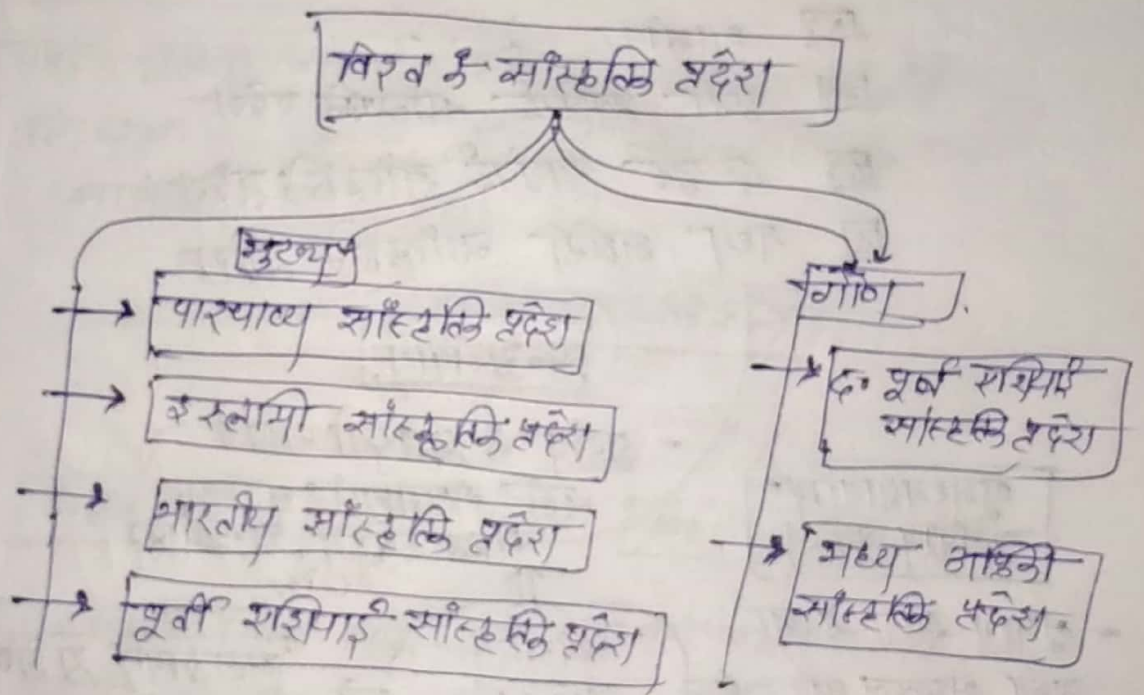 विश्व के सांस्कृतिक प्रदेश
मुख्य
पाश्चात्य सांस्कृतिक प्रदेश
इस्लामी सांस्कृतिक प्रदेश
भारतीय सांस्कृतिक प्रदेश
पूर्वी एशियाई सांस्कृतिक प्रदेश
गौण
द० पूर्व एशियाई
सांस्कृतिक प्रदेश
मध्य अफ्रीकी
सांस्कृतिक प्रदेश.